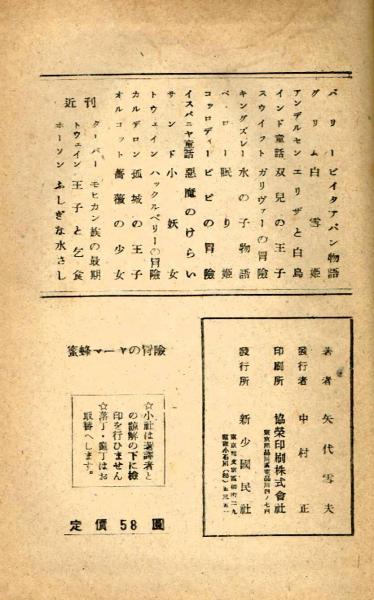 バリー ピイタアパン物語
グリム 白雪姫
アンデルセン エリザと白鳥
インド童話 双兒の王子
スウィフト ガリヴァーの冒險
キングズレー 水の子物語
ペ・ロー 眠り姫
コッロディー ピピの冒險
イスパニヤ童話 惡魔のけらい
サンド 小妖女
トウェイン ハックルベリーの冒險
カルデロン 孤城の王子
オルコット 薔薇の少女
近刊
クーパー モヒカン族の最期
トウェイン 王子と乞食
ホーソン ふしぎな水さし
著者 矢代雪夫
發行者 中村正
印刷所 協榮印刷株式會社
發行所 新少國民社
蜜蜂マーヤの冒險
☆小社は著譯者と
の諒解の下に檢
印を行ひません
☆落丁・亂丁はお
取替へします。
定價58圓